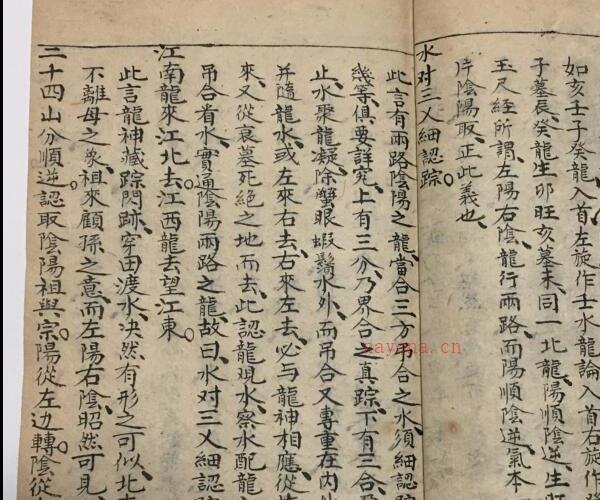 如亥壬子癸龍入首左旋作壬水龍論入首右旋作
子墓辰癸龍生卯旺亥墓未同一北龍陽順陰逆生
玉尺經所謂左陽右陰龍行兩路而陽順陰逆氣本
陰陽取正此義也
水对三乂細認踪
此言有兩路陰陽之龍當合三方吊合之水須細認踪
幾等俱要詳究上有三分乃界合之真踪下有三合
止水聚龍凝除蟹眼蝦鬚水外而吊合又專重在内
并隨龍水或左來右去右來左去必与龍神相應從
來又從衰墓死絶之地而去此認龍观水察水配龍
吊合看水實通陰陽兩路之龍故曰水对三乂細認
江南龍來江北去江西龍去望江東
此言龍神藏踪閃跡穿田渡水决然有形之可似北
不離母之象祖來顧孫之意而左陽右陰昭然可見
二十四山分順逆認取陰陽祖與宗陽從左边轉陰從
nayona.cn